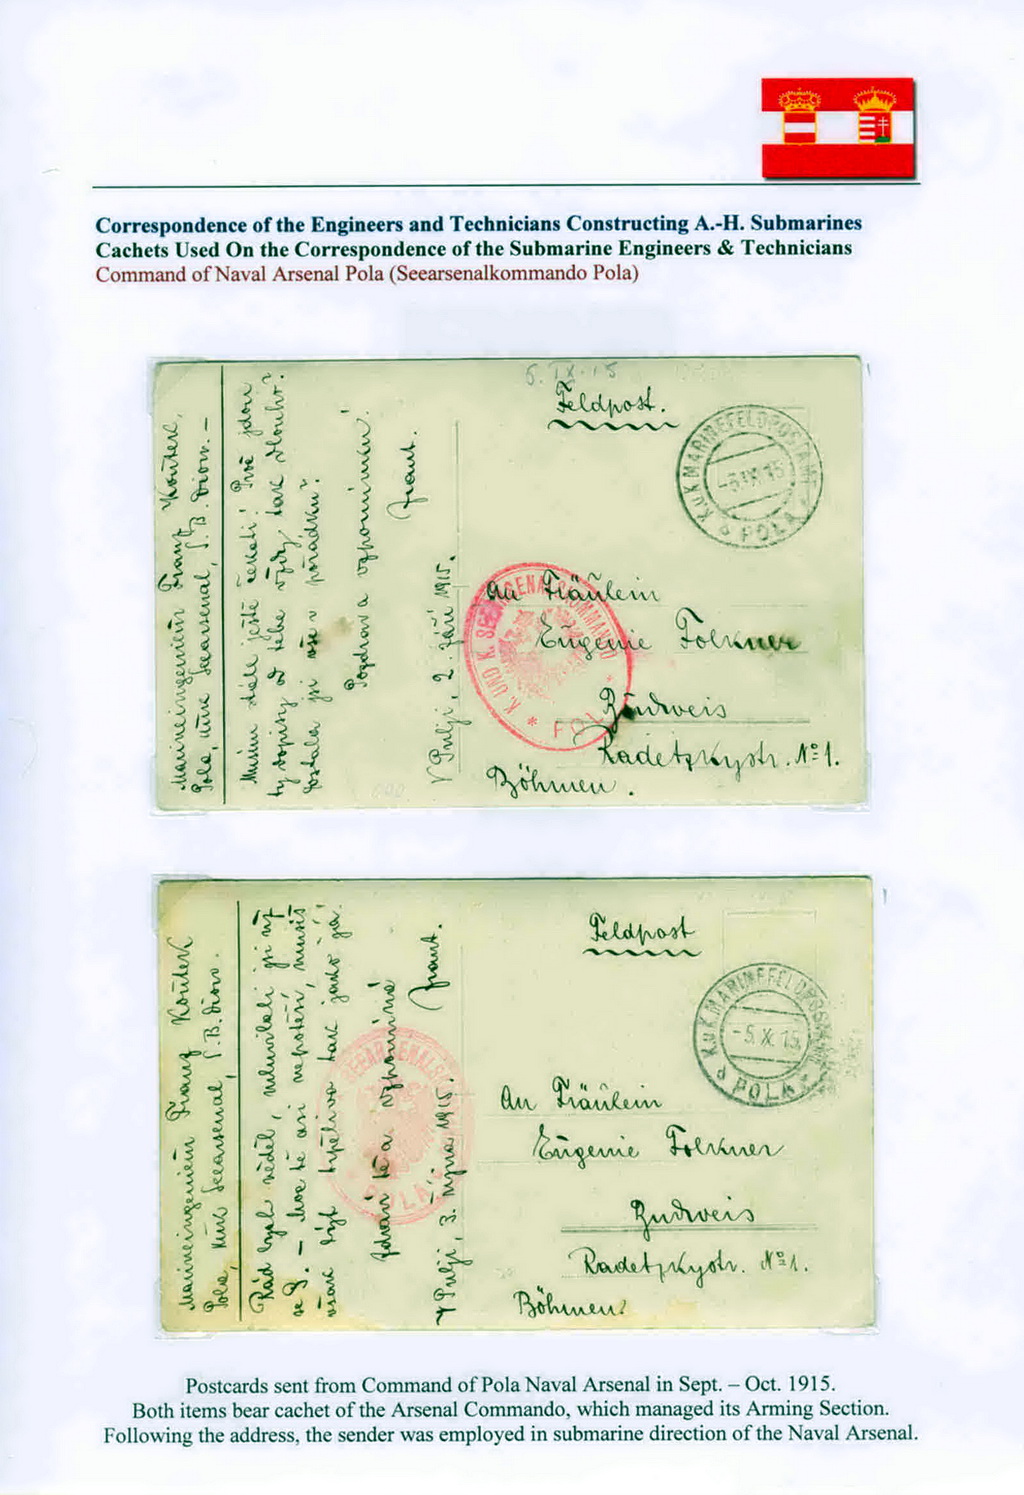 Correspondence of the Engineers and Technicians Constructing A.-H. Submarines
Cachets Used On the Correspondence of the Submarine Engineers & Technicians
Command of Naval Arsenal Pola (Seearsenalkommando Pola)
6.IX.15
Feldpost.
K.u.K. MARINEFELDPOSTAMT
POLA
Marineingenieur Franz
Pola, Seearsenal,
Musím déle ještě čekati! Proč jdou
ty dopisy od tebe vždy tak dlouho?
Dostala jsi vše v pořádku?
Pozdrav a vzpomínku!
Frant.
V Pulji, 2. září 1915.
K. UND K. SEEARSENALSKOMMANDO
* POLA *
An Fräulein
Eugenie Folkner
Budweis
Radetzkystr. Nº 1.
Böhmen.
Feldpost
K.u.K. MARINEFELDPOSTAMT
-5.X.15
POLA
Marineingenieur Franz
Pola, Seearsenal,
Rád bych věděl,
se
však býti trpělivá tak jako já.
a vzpomíná
Frant.
V Pulji, 3. října 1915.
SEEARSENALS
POLA
An Fräulein
Eugenie Folkner
Budweis
Radetzkystr. Nº 1.
Böhmen
Postcards sent from Command of Pola Naval Arsenal in Sept. – Oct. 1915.
Both items bear cachet of the Arsenal Commando, which managed its Arming Section.
Following the address, the sender was employed in submarine direction of the Naval Arsenal.